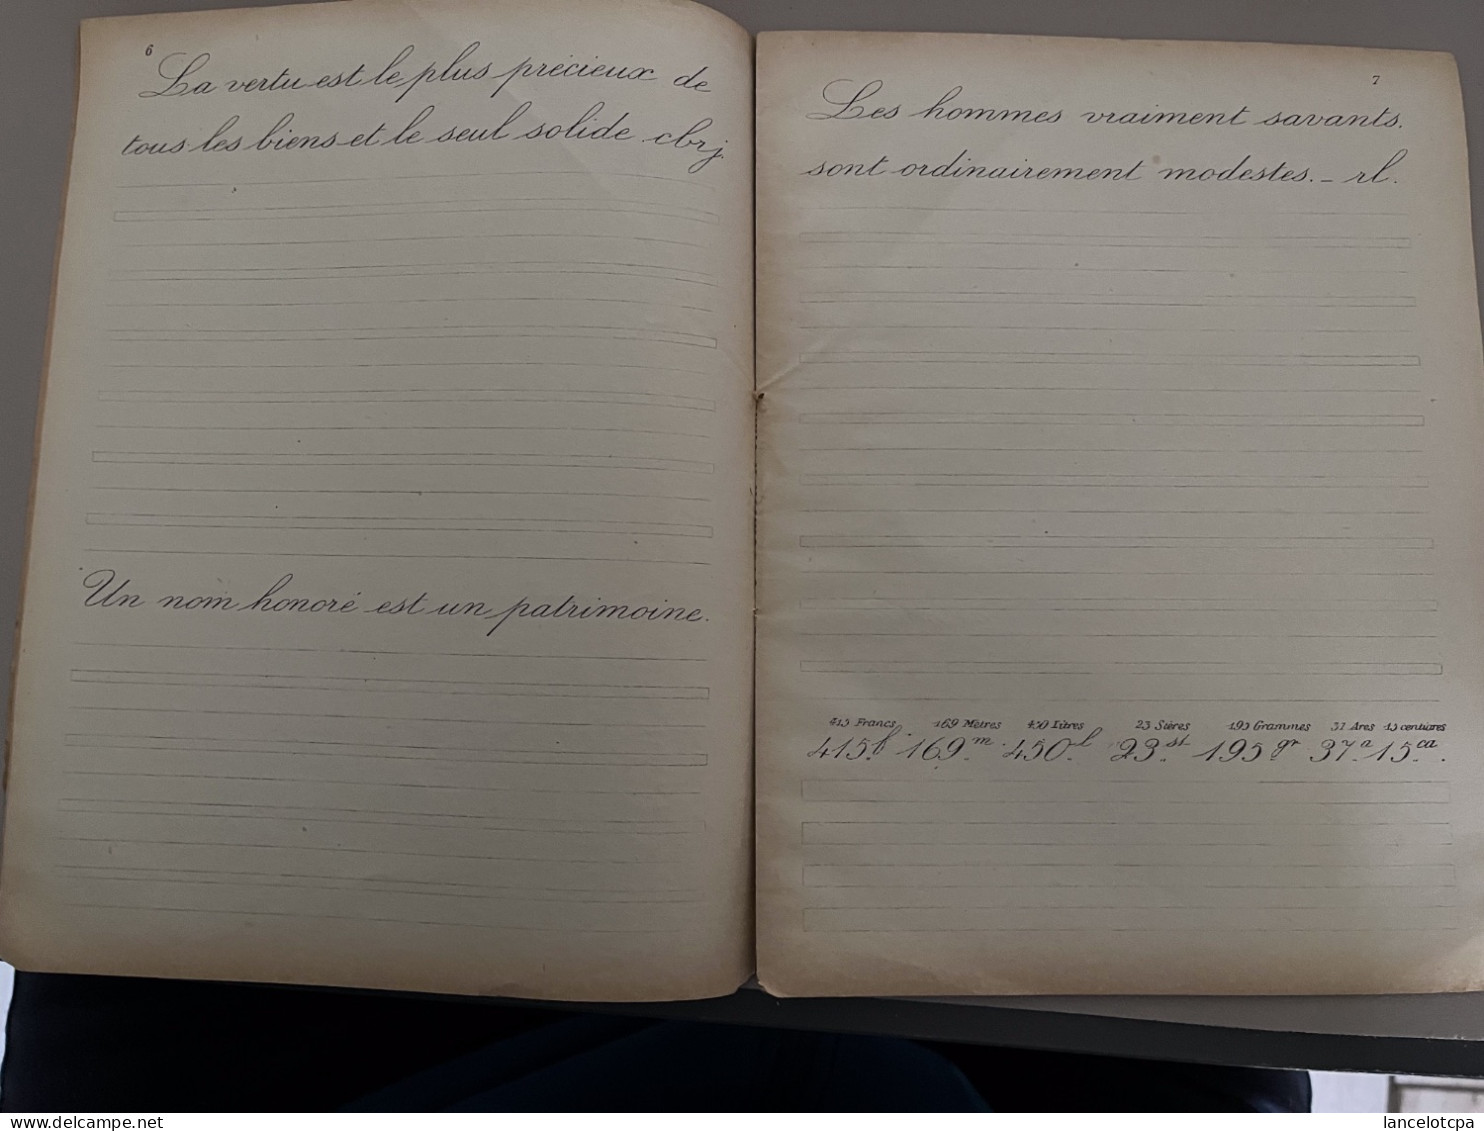 6
La vertu est le plus précieux de
tous les biens et le seul solide. cbrj.
Un nom honoré est un patrimoine.
7
Les hommes vraiment savants.
sont ordinairement modestes. _ rl.
415 Francs 169 Mètres 450 Litres 23 Stères 195 Grammes 37 Ares 15 centiares
415.f 169.m 450.l 23.st 195.gr 37.a 15.ca.
lancelotcpa